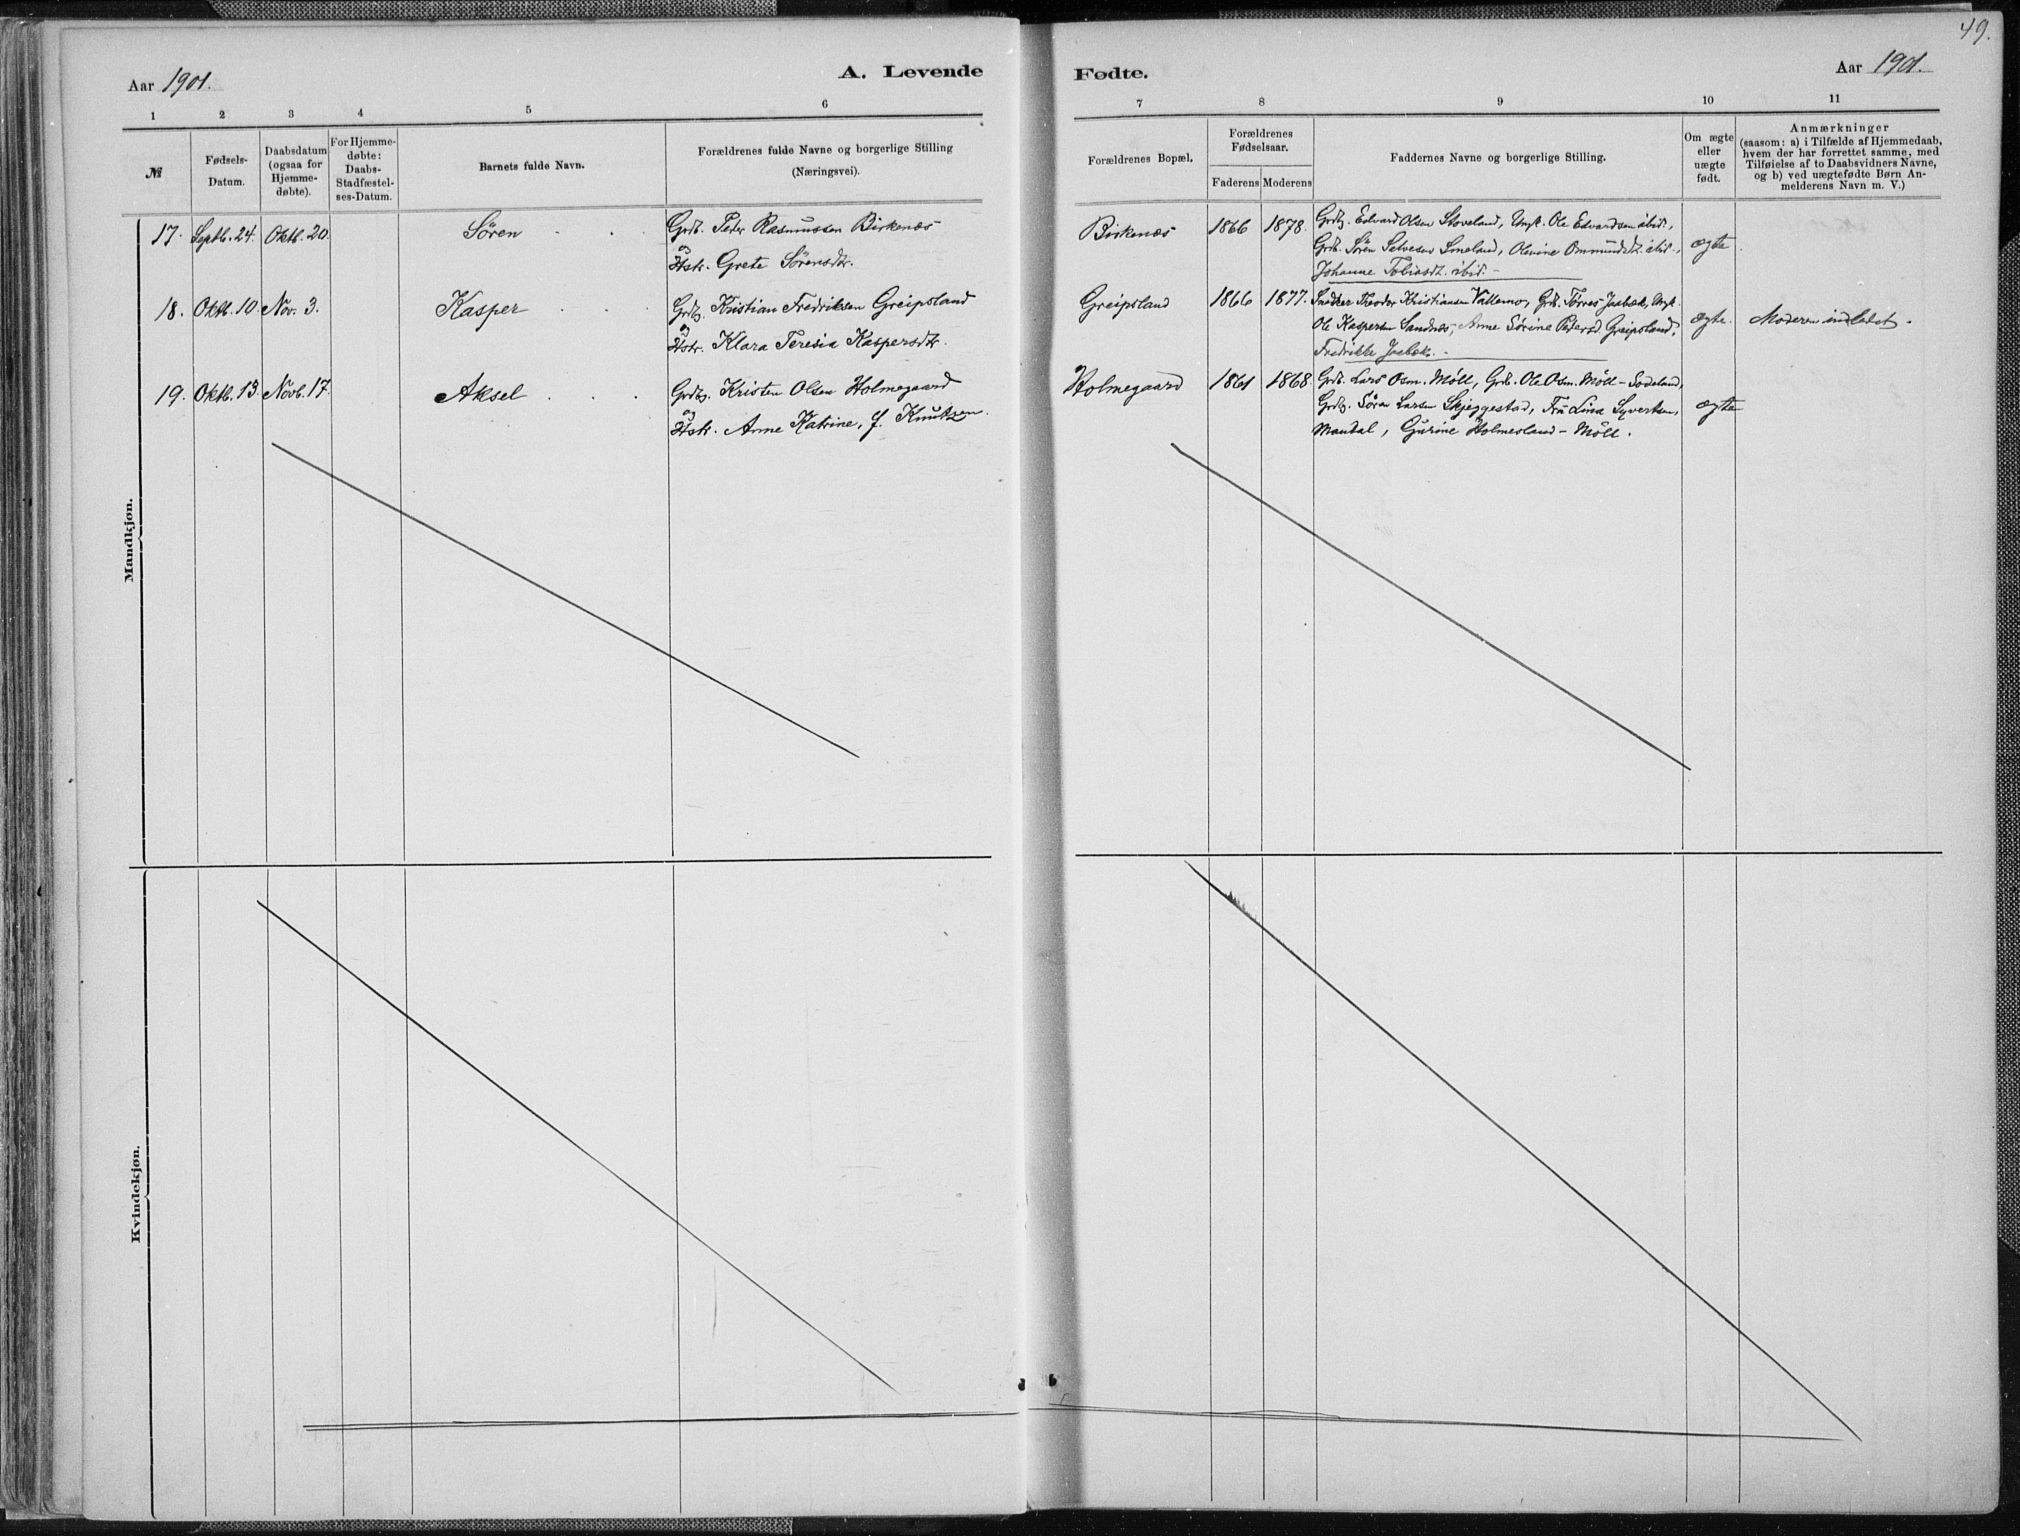 49.
Aar 1901.
A. Levende
Fødte.
Aar 1901.
1 2 3 4 5 6 7 8 9 10 11
№
Fødsels-
Datum.
Daabsdatum
(ogsaa for
Hjemme-
døbte).
For Hjemme-
døbte:
Daabs-
Stadfæstel-
ses-Datum.
Barnets fulde Navn.
Forældrenes fulde Navne og borgerlige Stilling
(Næringsvei).
Forældrenes Bopæl.
Forældrenes
Fødselsaar.
Faderens Moderens
Faddernes Navne og borgerlige Stilling.
Om ægte
eller
uægte
født.
Anmærkninger
(saasom: a) i Tilfælde af Hjemmedaab,
hvem der har forrettet samme, med
Tilføielse af to Daabsvidners Navne,
og b) ved uægtefødte Børn An-
melderens Navn m. V.)
Mandkjøn.
17. Septb. 24. Oktb. 20. Sören
Grdb. Peder Rasmussen Birkenæs
og
Hstr. Grete Sörensdtr.
Birkenæs 1866 1878.
Grdbg. Edvard Olsen Stoveland, Ungk. Ole Edvardsen ibid.,
Grdb. Sören Selvesen Smeland, Olevine Ommundsdt. ibid.,
Johanne Tobiasdt. ibid. –
ægte.
18. Oktb. 10. Nov. 3. Kasper
Grdbg. Kristian Fredriksen Greipsland
og
Hstr. Klara Teresia Kaspersdtr.
Greipsland 1866 1877.
Snedker Theodor Kristiansen Vallemo, Grdb. Törres Josbæk, Ungk.
Ole Kaspersen Sandnes, Anne Sörine Pedersd. Greipsland,
Fredrikke Josbæk. –
ægte. Moderen indledet.
19. Oktb. 13. Novb. 17. Aksel
Grdbg. Kristen Olsen Holmegaard
og
Hstr. Anne Katrine, f. Knutsen.
Holmegaard 1861 1868.
Grdb. Lars Osm. Möll, Grdb. Ole Osm. Möll – Sodeland,
Grdbg. Sören Larsen Skjeggestad, Fru Lina Syvertsen,
Mandal, Gurine Holmesland – Möll.
ægte
Kvindekjøn.